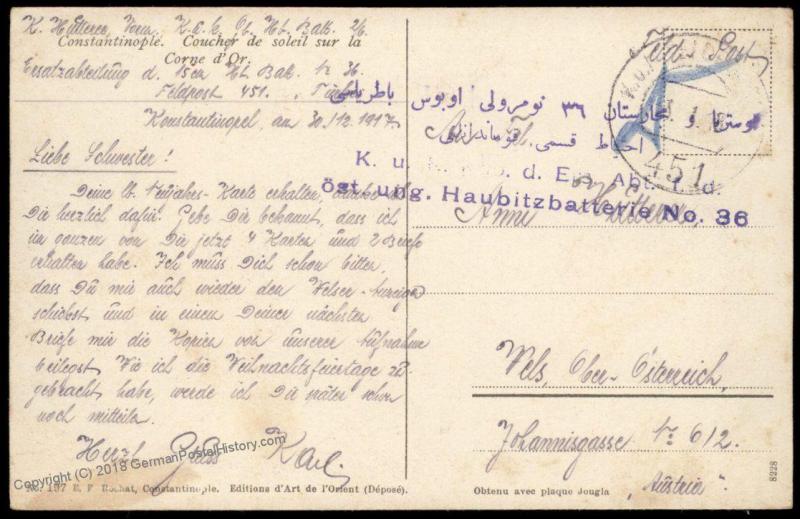 K. Hütterer, K. u. k. Ob. Hb. Batt. 2/6
Constantinople. Coucher de soleil sur la
Corne d'Or.
Ersatzabteilung d. 15cm Hb. Bat. № 36
Feldpost 451.
Konstantinopel, am 30./12. 1917
Liebe Schwester!
Deine lb. Neujahrs-Karte erhalten, danke
Dir herzlich dafür. Gebe Dir bekannt, dass ich
im ganzen von Dir jetzt 4 Karten und 2 Briefe
erhalten habe. Ich muss Dich schon bitten,
dass Du mir auch wieder den Welser-Anzeiger
schickst und in einen Deiner nächsten
Briefe mir die Kopien von unserer Aufnahme
beilegst. Wie ich die Weihnachtsfeiertage zu-
gebracht habe, werde ich Dir später schon
noch mitteilen.
Herzl. Gruss Karl
No. 137 E. F. Rochat, Constantinople. Editions d'Art de l'Orient (Déposé).
Feld-Post
451
اوستريا و مجارستان ٣٦ نومرولى اوبوس باطرياسى
احتياط قسمى قوماندانلغى
K. u. k. d. Ers. Abt.
öst. ung. Haubitzbatterie No. 36
Anni Hütterer,
Wels, Ober-Österreich,
Johannisgasse № 612.
"Austria".
Obtenu avec plaque Jougla
8228
Copyright (C) 2018 GermanPostalHistory.com